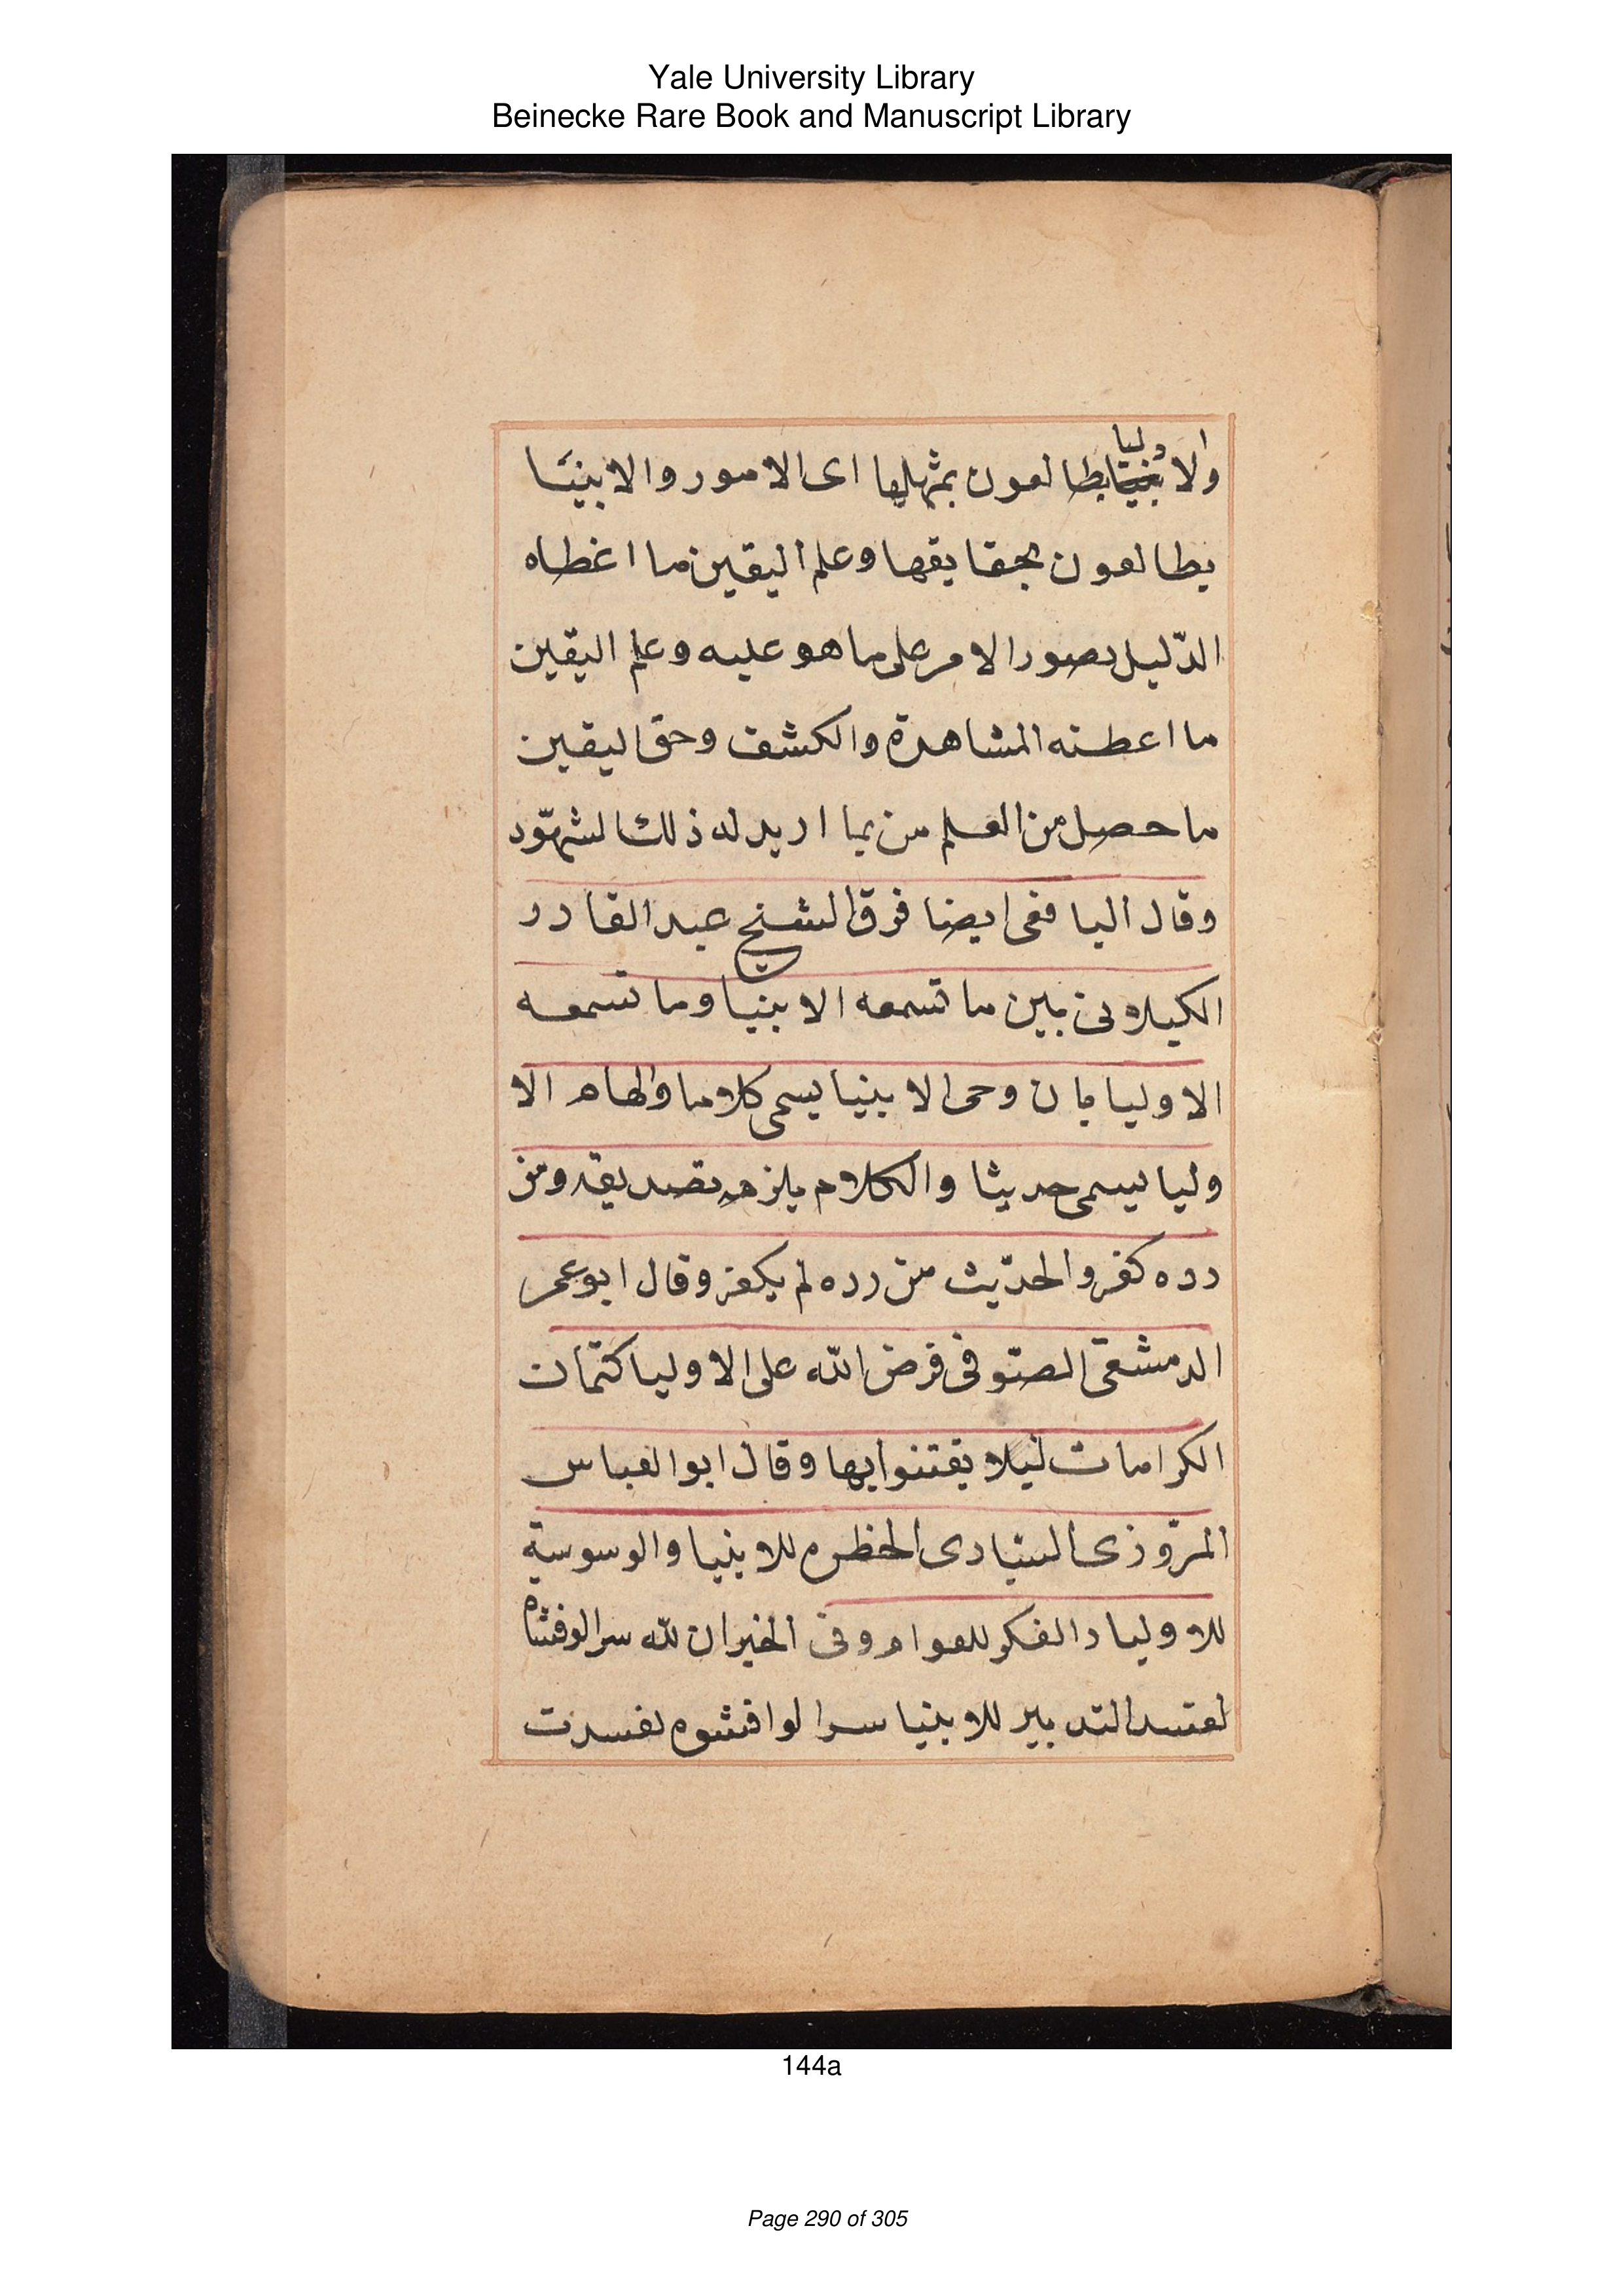 Yale University Library
Beinecke Rare Book and Manuscript Library
والاوليا يطالعون بمثلها اى الامور والانبيا
يطالعون بحقايقها وعلم اليقين ما اعطاه
الدّليل بصور الامر على ما هو عليه وعلم اليقين
ما اعطته المشاهدة والكشف وحق ليقين
ما حصل من العلم من بما اريد له ذلك لشهّود
وقال اليافعى ايضا فرق الشيخ عبد القادر
الكيلانى بين ما تسمعه الانبيا وما تسمعه
الاوليا بان وحى الانبيا يسمى كلاما والهام الا
وليا يسمى حديثا والكلام يلزمه تصديقه ومن
رده كفر والحدّيث من رده لم يكفر وقال ابو عمر
الدمشقى الصّوفى فرض الله على الاوليا كتمان
الكرامات ليلا يفتنوا بها وقال ابو العباس
المروزى السيادى الخطرة للانبيا والوسوسة
للاوليا والفكر للعوام وفى الخبر ان لله سرا لو افشاه
لفسد التدبير للانبيا سرا لو افشوه لفسدت
144a
Page 290 of 305